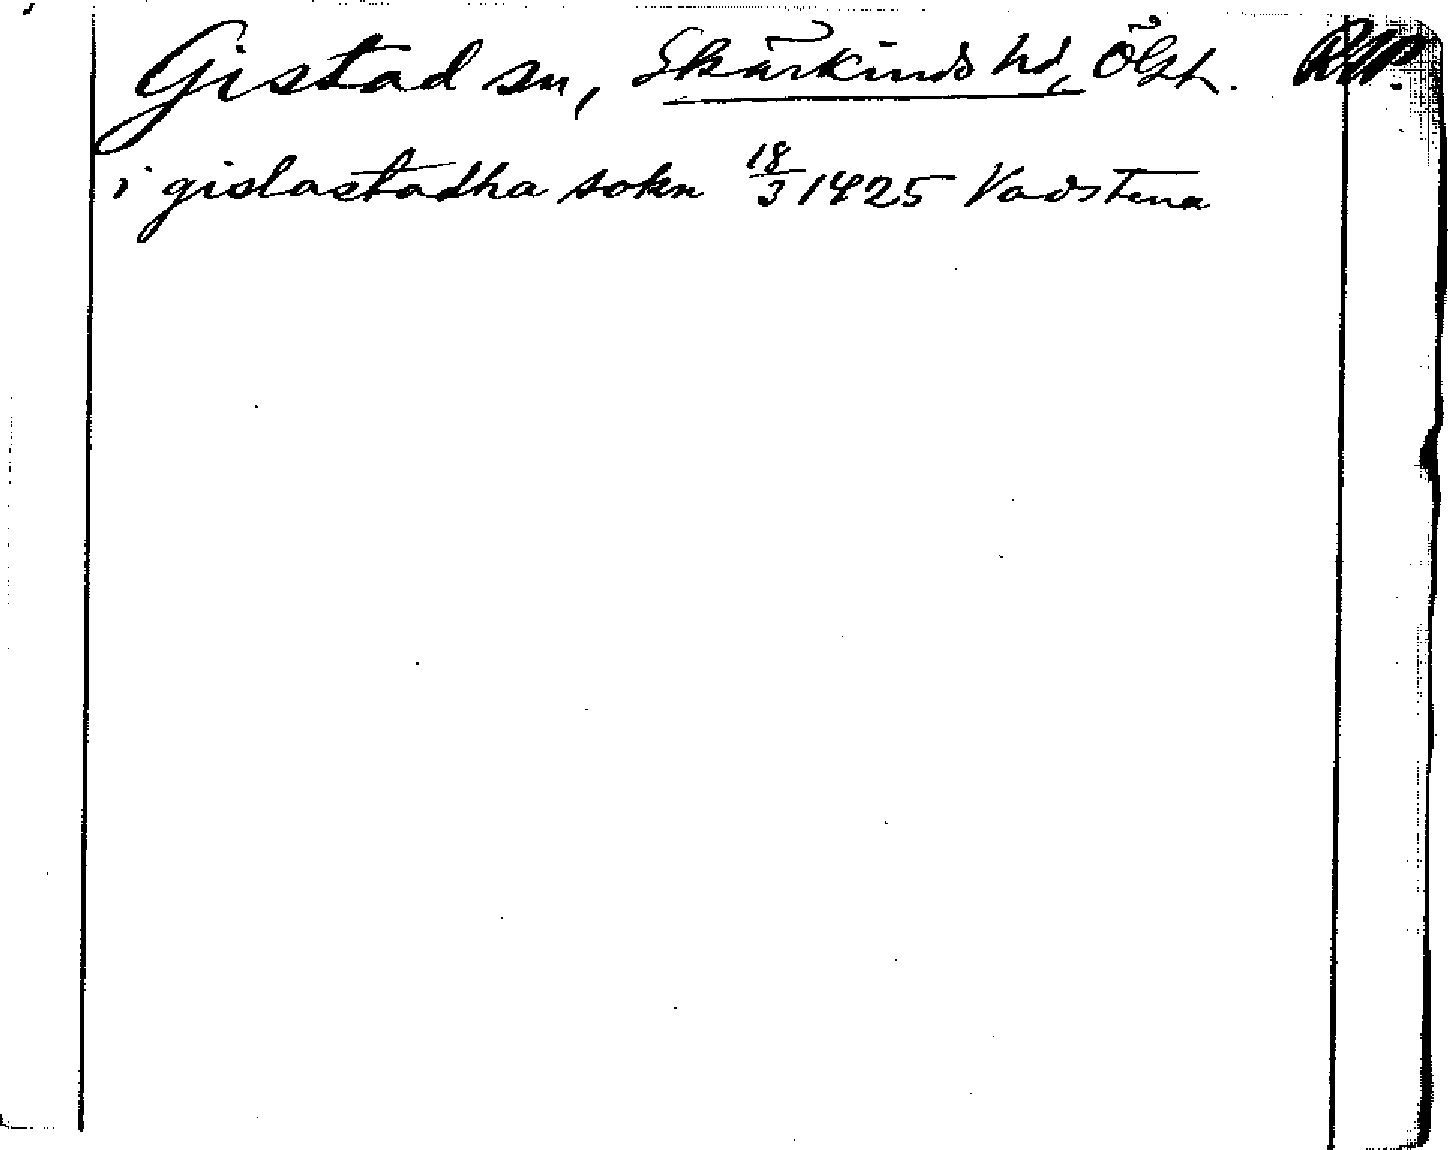 Gistad sn, Skärkinds hd, Ögl.
i gislastadha sokn 18/3 1425 Vadstena